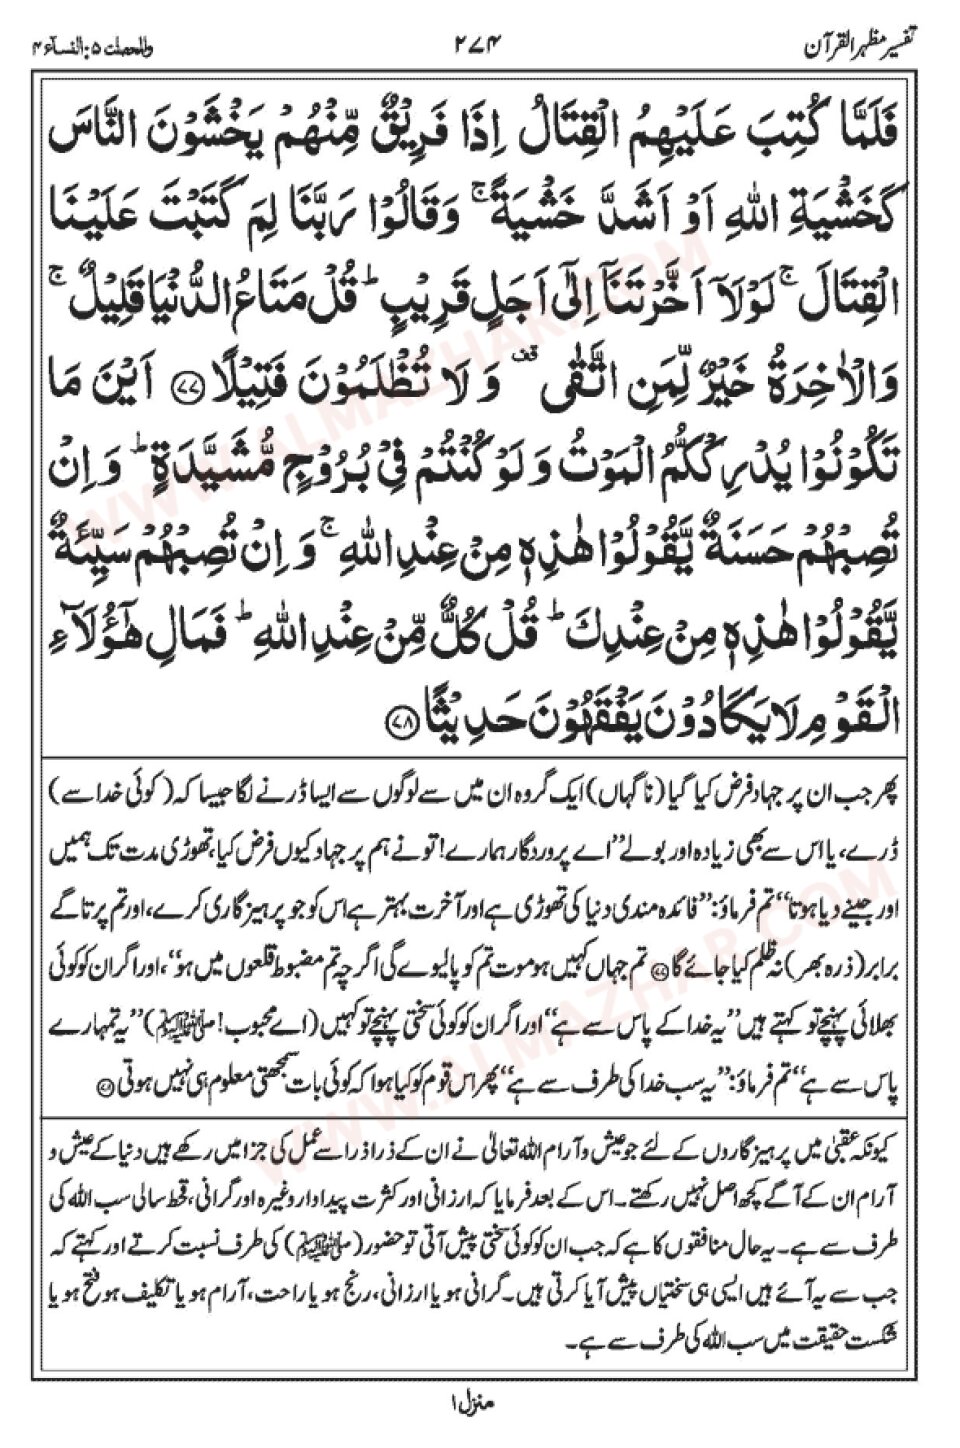 تفسیر مظہر القرآن ۲۷۴ والمحصنٰت ۵: النسآء ۴
فَلَمَّا كُتِبَ عَلَيْهِمُ الْقِتَالُ اِذَا فَرِيْقٌ مِّنْهُمْ يَخْشَوْنَ النَّاسَ
كَخَشْيَةِ اللّٰهِ اَوْ اَشَدَّ خَشْيَةً ۚ وَقَالُوْا رَبَّنَا لِمَ كَتَبْتَ عَلَيْنَا
الْقِتَالَ ۚ لَوْلَاۤ اَخَّرْتَنَاۤ اِلٰۤى اَجَلٍ قَرِيْبٍ ؕ قُلْ مَتَاعُ الدُّنْيَا قَلِيْلٌ ۚ
وَالْاٰخِرَةُ خَيْرٌ لِّمَنِ اتَّقٰى قف وَ لَا تُظْلَمُوْنَ فَتِيْلًا ﴿۷۷﴾ اَيْنَ مَا
تَكُوْنُوْا يُدْرِكْكُّمُ الْمَوْتُ وَ لَوْ كُنْتُمْ فِيْ بُرُوْجٍ مُّشَيَّدَةٍ ؕ وَ اِنْ
تُصِبْهُمْ حَسَنَةٌ يَّقُوْلُوْا هٰذِهٖ مِنْ عِنْدِ اللّٰهِ ۚ وَ اِنْ تُصِبْهُمْ سَيِّئَةٌ
يَّقُوْلُوْا هٰذِهٖ مِنْ عِنْدِكَ ؕ قُلْ كُلٌّ مِّنْ عِنْدِ اللّٰهِ ؕ فَمَالِ هٰۤؤُلَآءِ
الْقَوْمِ لَا يَكَادُوْنَ يَفْقَهُوْنَ حَدِيْثًا ﴿۷۸﴾
پھر جب ان پر جہاد فرض کیا گیا (ناگہاں) ایک گروہ ان میں سے لوگوں سے ایسا ڈرنے لگا جیسا کہ (کوئی خدا سے)
ڈرے، یا اس سے بھی زیادہ اور بولے ”اے پروردگار ہمارے! تو نے ہم پر جہاد کیوں فرض کیا، تھوڑی مدت تک ہمیں
اور جینے دیا ہوتا“ تم فرماؤ: ”فائدہ مندی دنیا کی تھوڑی ہے اور آخرت بہتر ہے اس کو جو پرہیزگاری کرے، اور تم پر تاگے
برابر (ذرہ بھر) نہ ظلم کیا جائے گا ﴿۷۷﴾ تم جہاں کہیں ہو موت تم کو پالیوے گی اگرچہ تم مضبوط قلعوں میں ہو“، اور اگر ان کو کوئی
بھلائی پہنچے تو کہتے ہیں ”یہ خدا کے پاس سے ہے“ اور اگر ان کو کوئی سختی پہنچے تو کہیں (اے محبوب! ﷺ) ”یہ تمہارے
پاس سے ہے“ تم فرماؤ: ”یہ سب خدا کی طرف سے ہے“ پھر اس قوم کو کیا ہوا کہ کوئی بات سمجھتی معلوم ہی نہیں ہوتی ﴿۷۸﴾
کیونکہ عقبیٰ میں پرہیزگاروں کے لئے جو عیش و آرام اللہ تعالیٰ نے ان کے ذرا ذرا سے عمل کی جزا میں رکھے ہیں دنیا کے عیش و
آرام ان کے آگے کچھ اصل نہیں رکھتے۔ اس کے بعد فرمایا کہ ارزانی اور کثرت پیداوار وغیرہ اور گرانی، قحط سالی سب اللہ کی
طرف سے ہے۔ یہ حال منافقوں کا ہے کہ جب ان کو کوئی سختی پیش آتی تو حضور (ﷺ) کی طرف نسبت کرتے اور کہتے کہ
جب سے یہ آئے ہیں ایسی ہی سختیاں پیش آیا کرتی ہیں۔ گرانی ہو یا ارزانی، رنج ہو یا راحت، آرام ہو یا تکلیف ہو فتح ہو یا
شکست حقیقت میں سب اللہ کی طرف سے ہے۔
منزل ۱
WWW.ALMAZHAR.COM
WWW.ALMAZHAR.COM